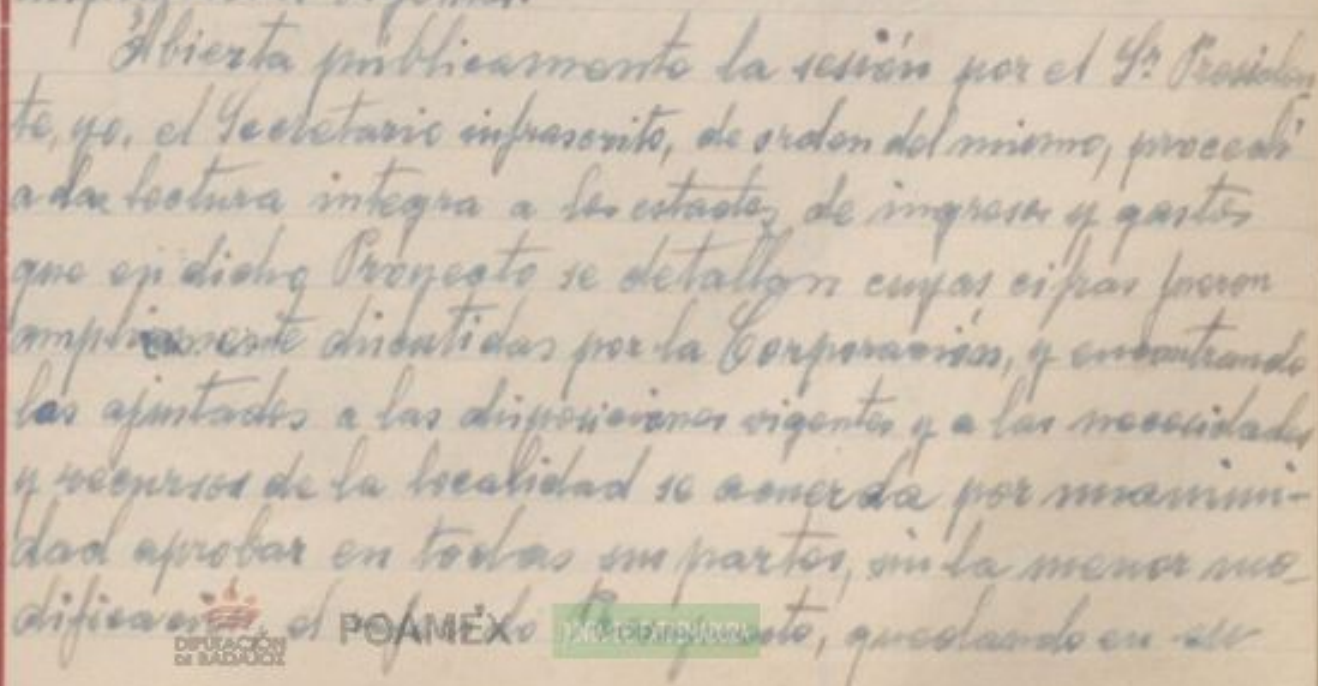 Abierta públicamente la sesión por el Sr. Presiden-
te, yo, el Secretario infrascrito, de orden del mismo, procedí
a dar lectura integra a los estados de ingresos y gastos
que en dicho Proyecto se detallan cuyas cifras fueron
ampliamente discutidas por la Corporación, y encontrando
los ajustados a las disposiciones vigentes y a las necesidades
y recursos de la localidad se acuerda por unanimi-
dad aprobar en todas sus partes, sin la menor mo-
dificación el Proyecto, quedando en su
DIPUTACIÓN
DE BADAJOZ
POAMEX